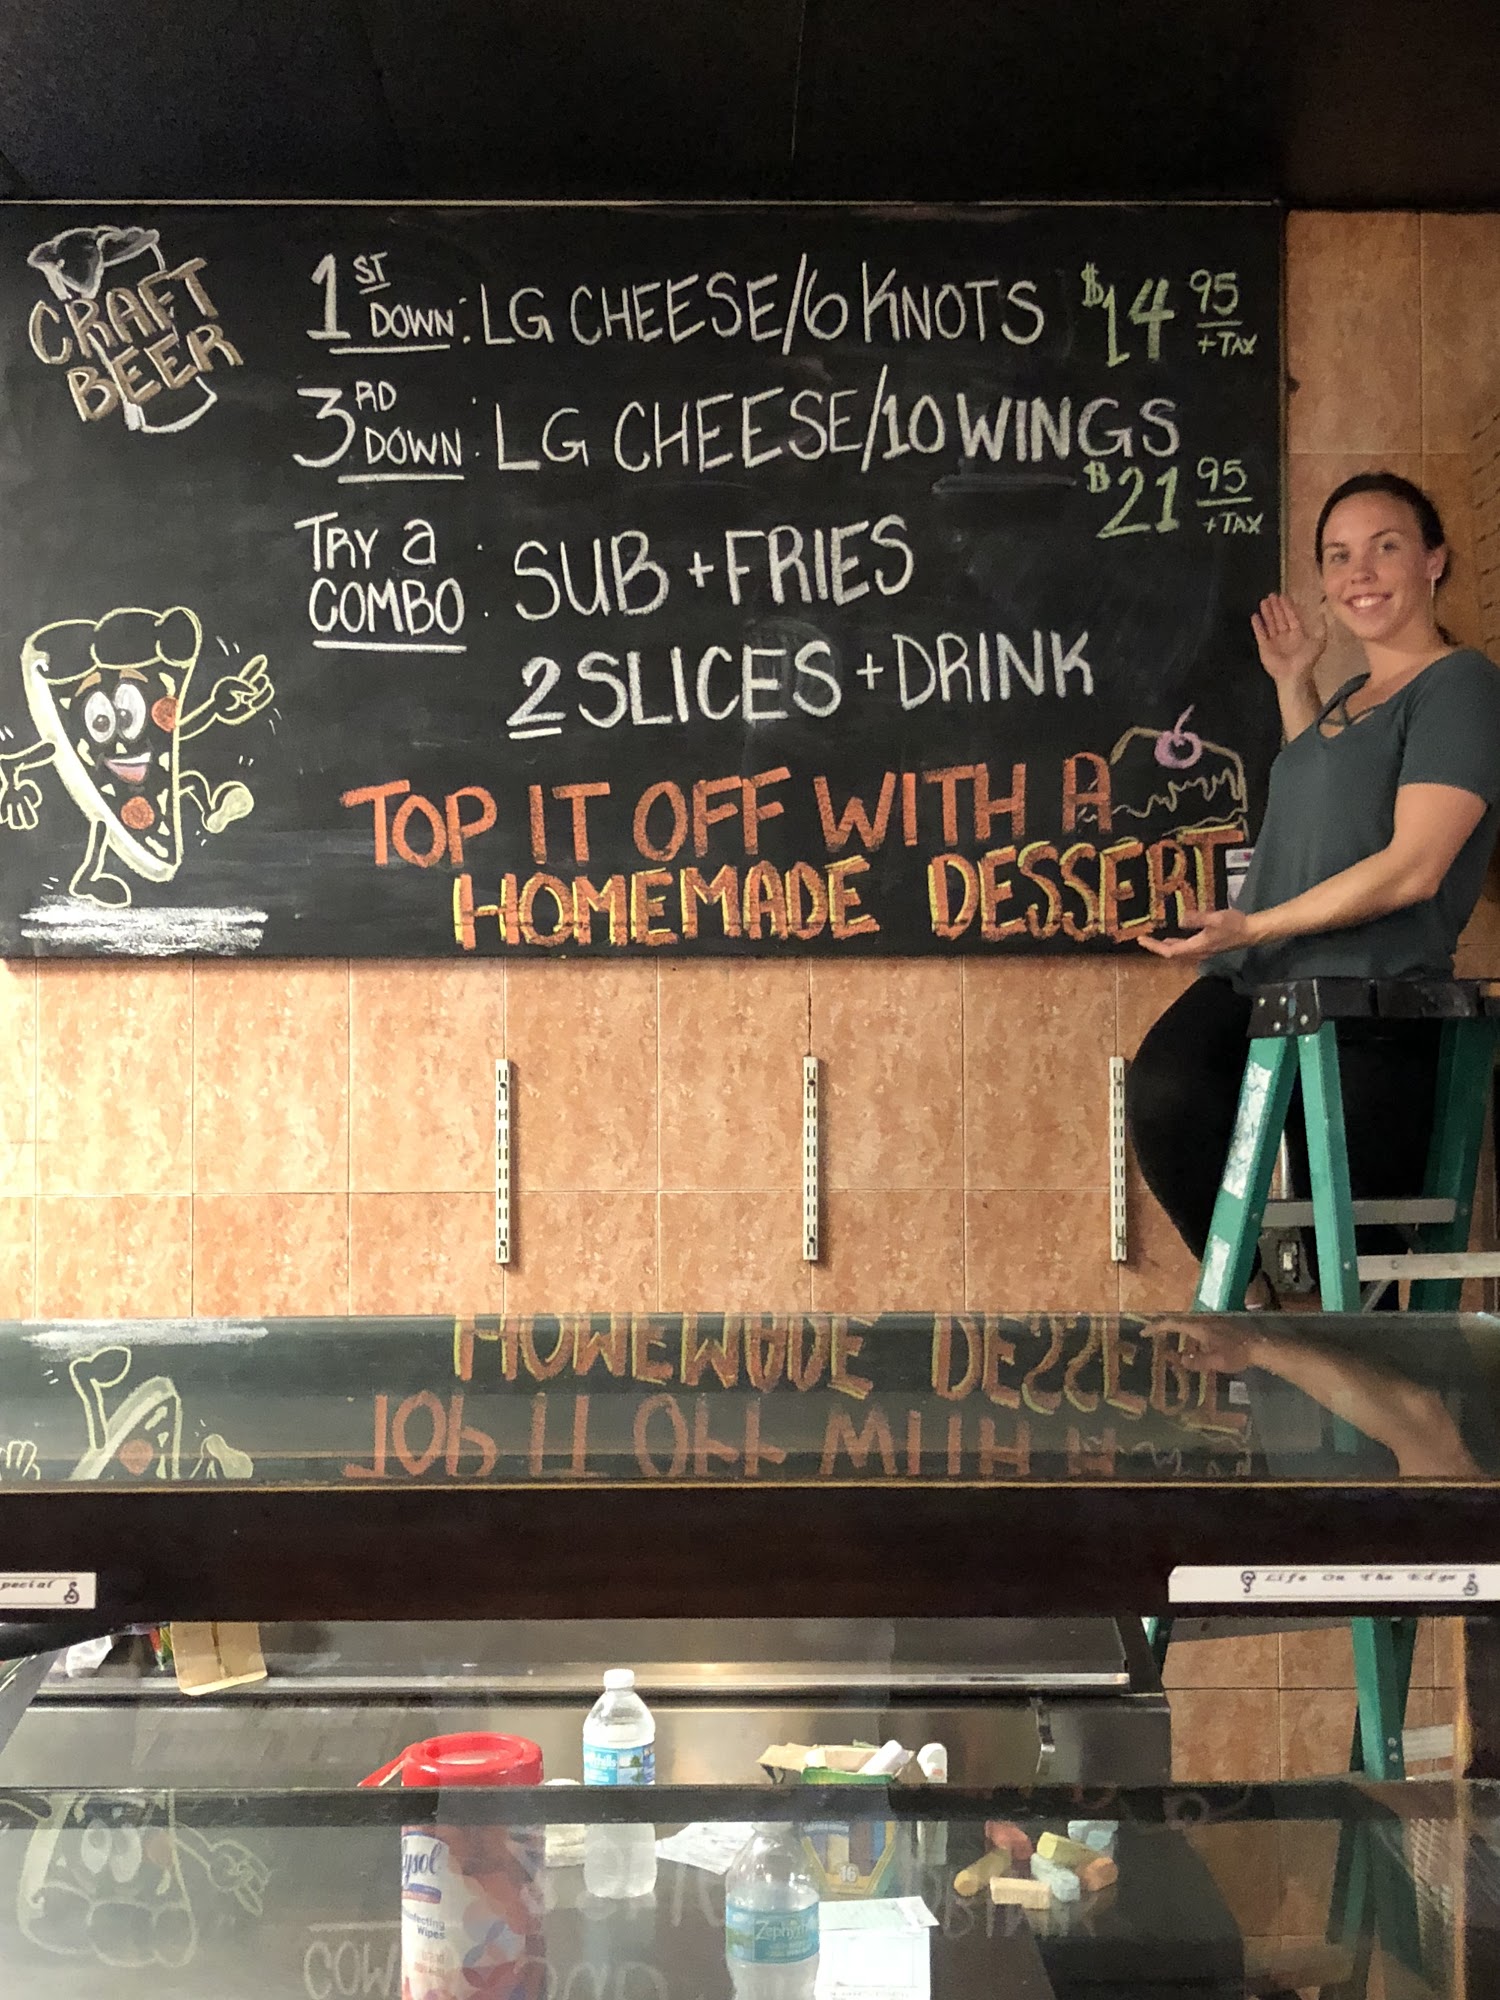 CRAFT
BEER
1ST DOWN: LG CHEESE/6 KNOTS $14 95 + TAX
3RD DOWN: LG CHEESE/10 WINGS
$21 95 + TAX
TRY a COMBO: SUB + FRIES
2 SLICES + DRINK
TOP IT OFF WITH A
HOMEMADE DESSERT
pecial
Life On The Edge
ysol
Wipes
Zephyr
16